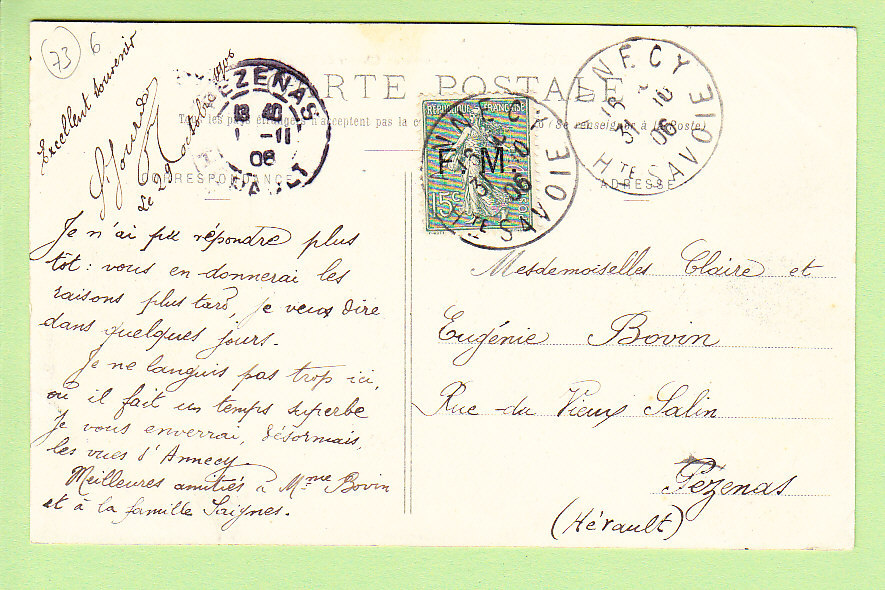 73
6
Excellent souvenir
Le 29 octobre 1906
CARTE POSTALE
Tous les pays étrangers n'acceptent pas la
Se renseigner à la Poste
CORRESPONDANCE
ADRESSE
PEZENAS
1 -11
06
HERAULT
REPUBLIQUE FRANÇAISE
F. M.
15c
ANNECY
31 -10
06
HTE SAVOIE
ANNECY
31 10
06
HTE SAVOIE
Je n'ai pu répondre plus
tôt : vous en donnerai les
raisons plus tard, je veux dire
dans quelques jours.
Je ne languis pas trop ici,
où il fait un temps superbe
Je vous enverrai, désormais,
les vues d'Annecy
Meilleures amitiés à Mme Bovin
et à la famille Saignes.
Mesdemoiselles Claire et
Eugénie Bovin
Rue du Vieux Salin
Pézenas
(Hérault)